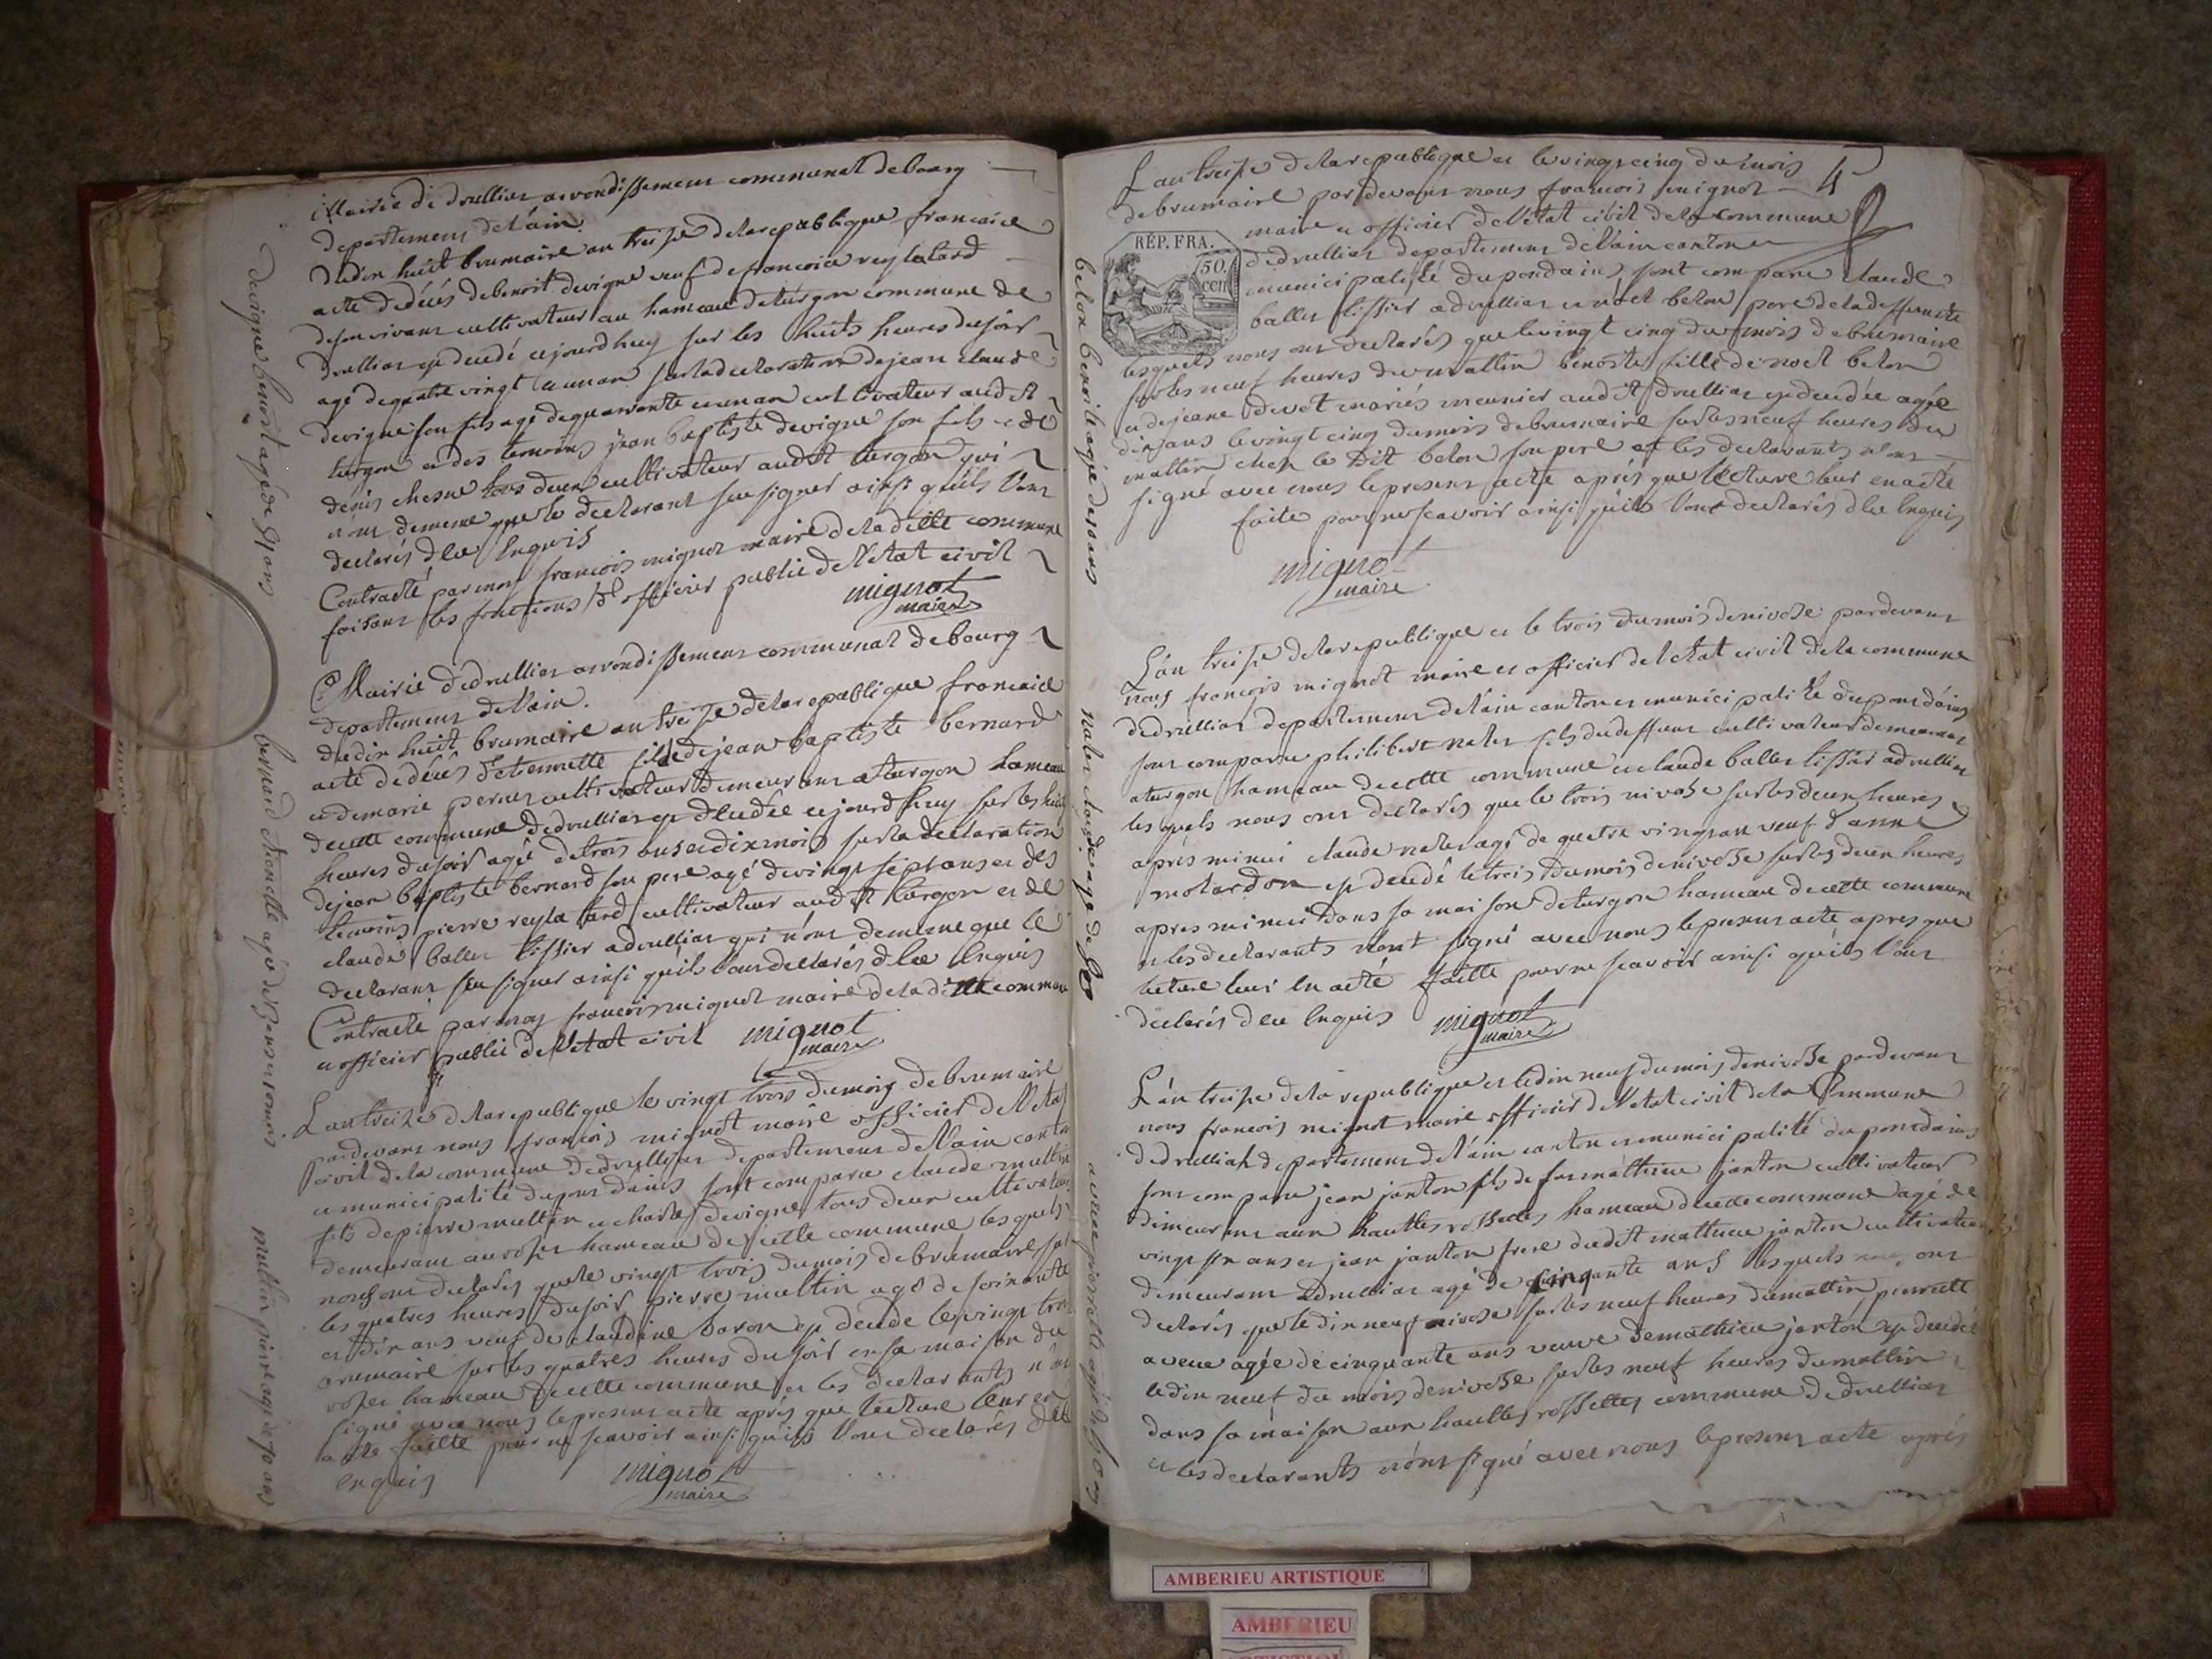 Mairie de druillias arrondissement communal debourg
departement delain.
Dudix huit brumaire an treize delarepublique francaise
acte dedécés debenoit devigne veuf defrancoise reylatard
desonvivant cultivateur au hameau deturgon commune de
druillias est decedé cejourdhuy sur les huits heures dusoir
agé dequatre vingt un an surladeclaration dejean claude
devigne son fils agé dequarente un an cultivateur audit
turgon et des temoins jean baptiste devigne son fils et de
denis chesne tous deux cultivateur audit turgon qui
n'ont dememe que le declarant seu signer ainsi quils l'ont
declarés dlee Enquis
Contracté par moy francois mignot maire deladitte commune
faisant les fonctions d'officier public de l'etat civil
mignot
maire
Mairie dedruillias arrondissement communal debourg
departement delain.
dudix huit brumaire an treize delarepublique francaise
acte dedécés d'etiennette fille dejean baptiste bernard
et demarie pernet cultivateur demeurant aturgon hameau
decette commune dedruillias est decedée cejourdhuy sur les huit
heures dusoir agée detrois ans et dix mois sur la declaration
dejean baptiste bernard son pere agé devingt sept ans et des
temoins pierre reylatard cultivateur audit turgon et de
claude ballet tissier adruillias qui n'ont dememe que le
declarant seu signer ainsi quils l'ont declarés dlee Enquis
Contracté par moy francois mignot maire deladitte commune
et officier public de l'etat civil mignot
maire
L'an treize delarepublique le vingt trois dumois debrumaire
pardevant nous francois mignot maire officier de l'etat
civil dela commune dedruillias departement de l'ain canton
et municipalité dupont dains sont comparu claude multin
fils depierre multin et charles devigne tous deux cultivateurs
demeurant au rosier hameau de cette commune lesquels
nous ont declarés que le vingt trois dumois debrumaire sur
les quatres heures dusoir pierre multin agé desoixante
et dix ans veuf de claudine baron est decedé levingt trois
brumaire sur les quatres heures du soir en sa maison du
rosier hameau decette commune et les declarants n'ont
signé avec nous lepresent acte aprés que lecture leur en
a ete faitte pour ne scavoir ainsi quils l'ont declarés dlee
enquis
mignot
maire
devigne benoit agé de 81 ans
bernard etiennette agée de 3 ans 10 mois
multin pierre agé de 70 ans
4
L'an treize delarepublique et levingt cinq du mois
debrumaire pardevant nous francois mignot
maire et officier del'etat civil dela commune
dedruillias departement del'ain canton et
municipalité dupondains sont comparu claude
ballet tissier adruillias et noel belon pere deladeffuncte
RÉP. FRA.
50
cen
lesquels nous ont declarés que levingt cinq du mois debrumaire
sur les neuf heures du mattin benoite fille de noel belon
et dejeane devot mariés meunier audit druillias est decedée agée
dix ans levingt cinq dumois debrumaire sur les neuf heures du
mattin chez le dit belon son pere et les declarants n'ont
signé avec nous lepresent acte aprés que lecture leur en acté
faite pour ne scavoir ainsi quils l'ont declarés dlee Enquis
mignot
maire
L'an treize delarepublique et le trois dumois denivose pardevant
nous francois mignot maire et officier del'etat civil dela commune
dedruillias departement del'ain canton et municipalité dupondains
sont comparu philibert nalet fils dudeffunt cultivateur demeurant
aturgon hameau decette commune et claude ballet tissier adruillias
lesquels nous ont declarés que le trois nivose sur les deux heures
aprés minui claude nalet agé de quatre vingt an veuf d'anne
molardon est decedé le trois dumois denivose sur les deux heures
apres minui dans sa maison deturgon hameau decette commune
et les declarants n'ont signé avec nous lepresent acte apres que
lecture leur en acté faitte pour ne scavoir ainsi quils l'ont
declarés dlee Enquis mignot
maire
L'an treize dela republique et ledix neuf dumois denivose pardevant
nous francois mignot maire officier del'etat civil dela Commune
dedruillias departement del'ain canton et municipalité du pontdains
sont comparu jean janton fils de feu matthieu janton cultivateur
demeurant aux hauttes rossettes hameau decette commune agé de
vingt six ans et jean janton frere dudit matthieu janton cultivateur
demeurant adruillias agé de cinquante ans lesquels nous ont
declarés que le dix neuf nivose sur les neuf heures dumattin pierrette
aveue agée de cinquante ans veuve demathieu janton est decedée
ledix neuf du mois denivose sur les neuf heures dumattin
dans sa maison aux hauttes rossettes commune dedruillias
et les declarants n'ont signé avec nous lepresent acte aprés
belon benoite agée de 10 ans
nalet claude agé de 80
aveue pierrette agée de 50 ans
AMBERIEU ARTISTIQUE
AMBERIEU
ARTISTIQUE